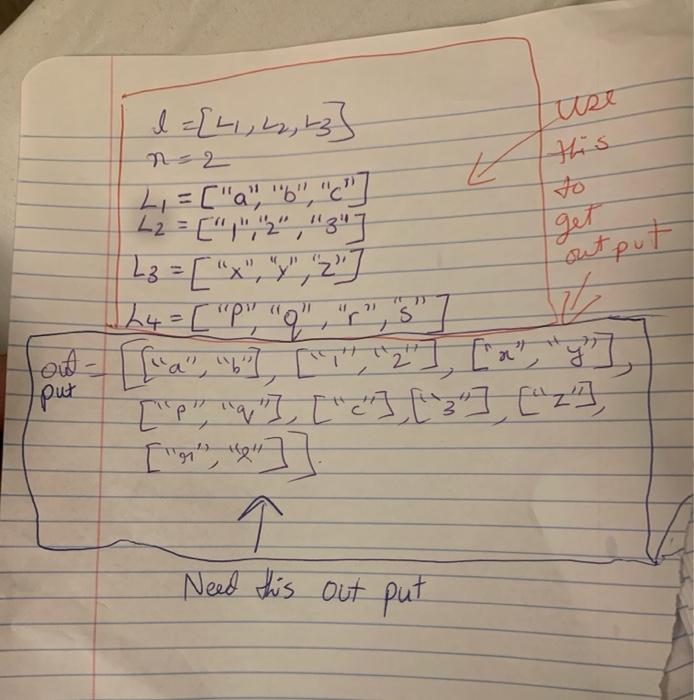 l = [L1, L2, L3]
n = 2
L1 = ["a", "b", "c"]
L2 = ["1", "2", "3"]
L3 = ["x", "y", "z"]
L4 = ["p", "q", "r", "s"]
Use
this
to
get
out put
out put = [["a", "b"], ["1", "2"], ["x", "y"],
["p", "q"], ["c"], ["3"], ["z"],
["r", "s"]].
Need this out put